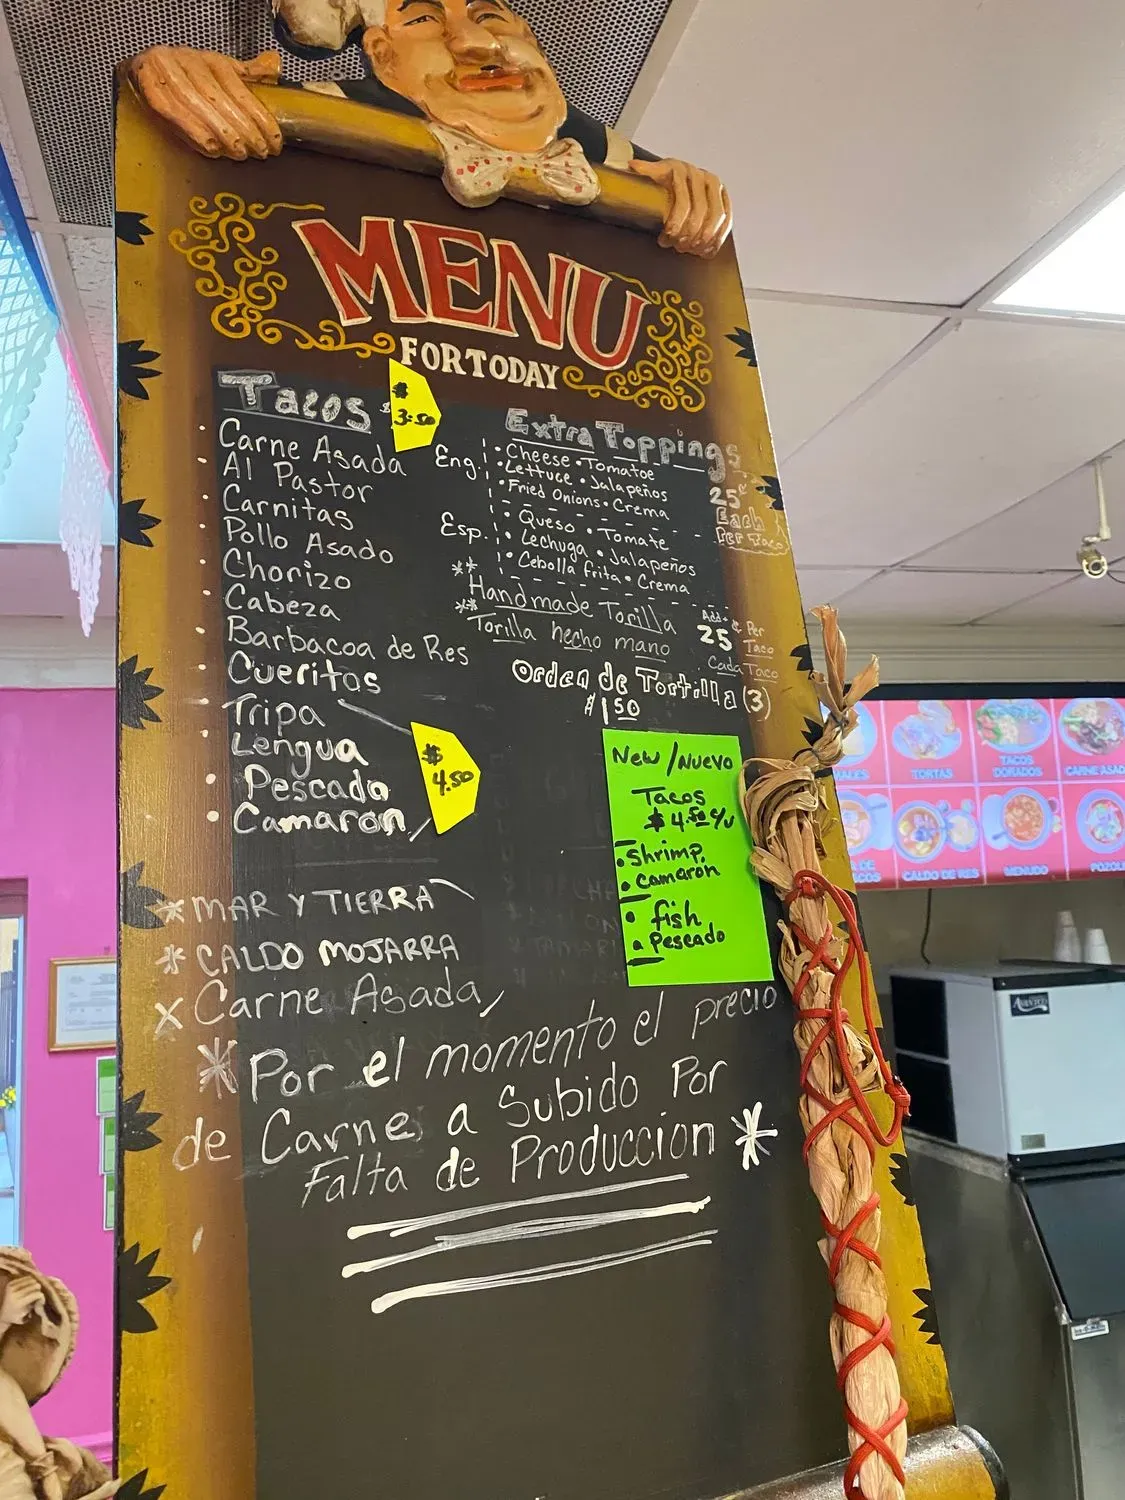 MENU
FOR TODAY
Tacos
$
3.50
Carne Asada
Al Pastor
Carnitas
Pollo Asado
Chorizo
Cabeza
Barbacoa de Res
Cueritos
Tripa
Lengua
Pescado
Camaron
$
4.50
Extra Toppings
Eng:
• Cheese • Tomatoe
• Lettuce • Jalapeños
• Fried Onions • Crema
25¢
Each
Per Taco
Esp.
• Queso • Tomate
• Lechuga • Jalapeños
• Cebolla frita • Crema
** Handmade Torilla
** Torilla hecho mano
Add
25 ¢ Per
Taco
Cada Taco
Orden de Tortilla (3)
$1.50
New/Nuevo
Tacos
$4.50 c/u
• Shrimp
• Camarón
• fish
• Pescado
* MAR Y TIERRA
* CALDO MOJARRA
X Carne Asada
* Por el momento el precio
de Carne a Subido Por
Falta de Produccion *
TORTAS
TACOS
DORADOS
CARNE ASAD
CALDO DE RES
MENUDO
POZOL
AVANTCO